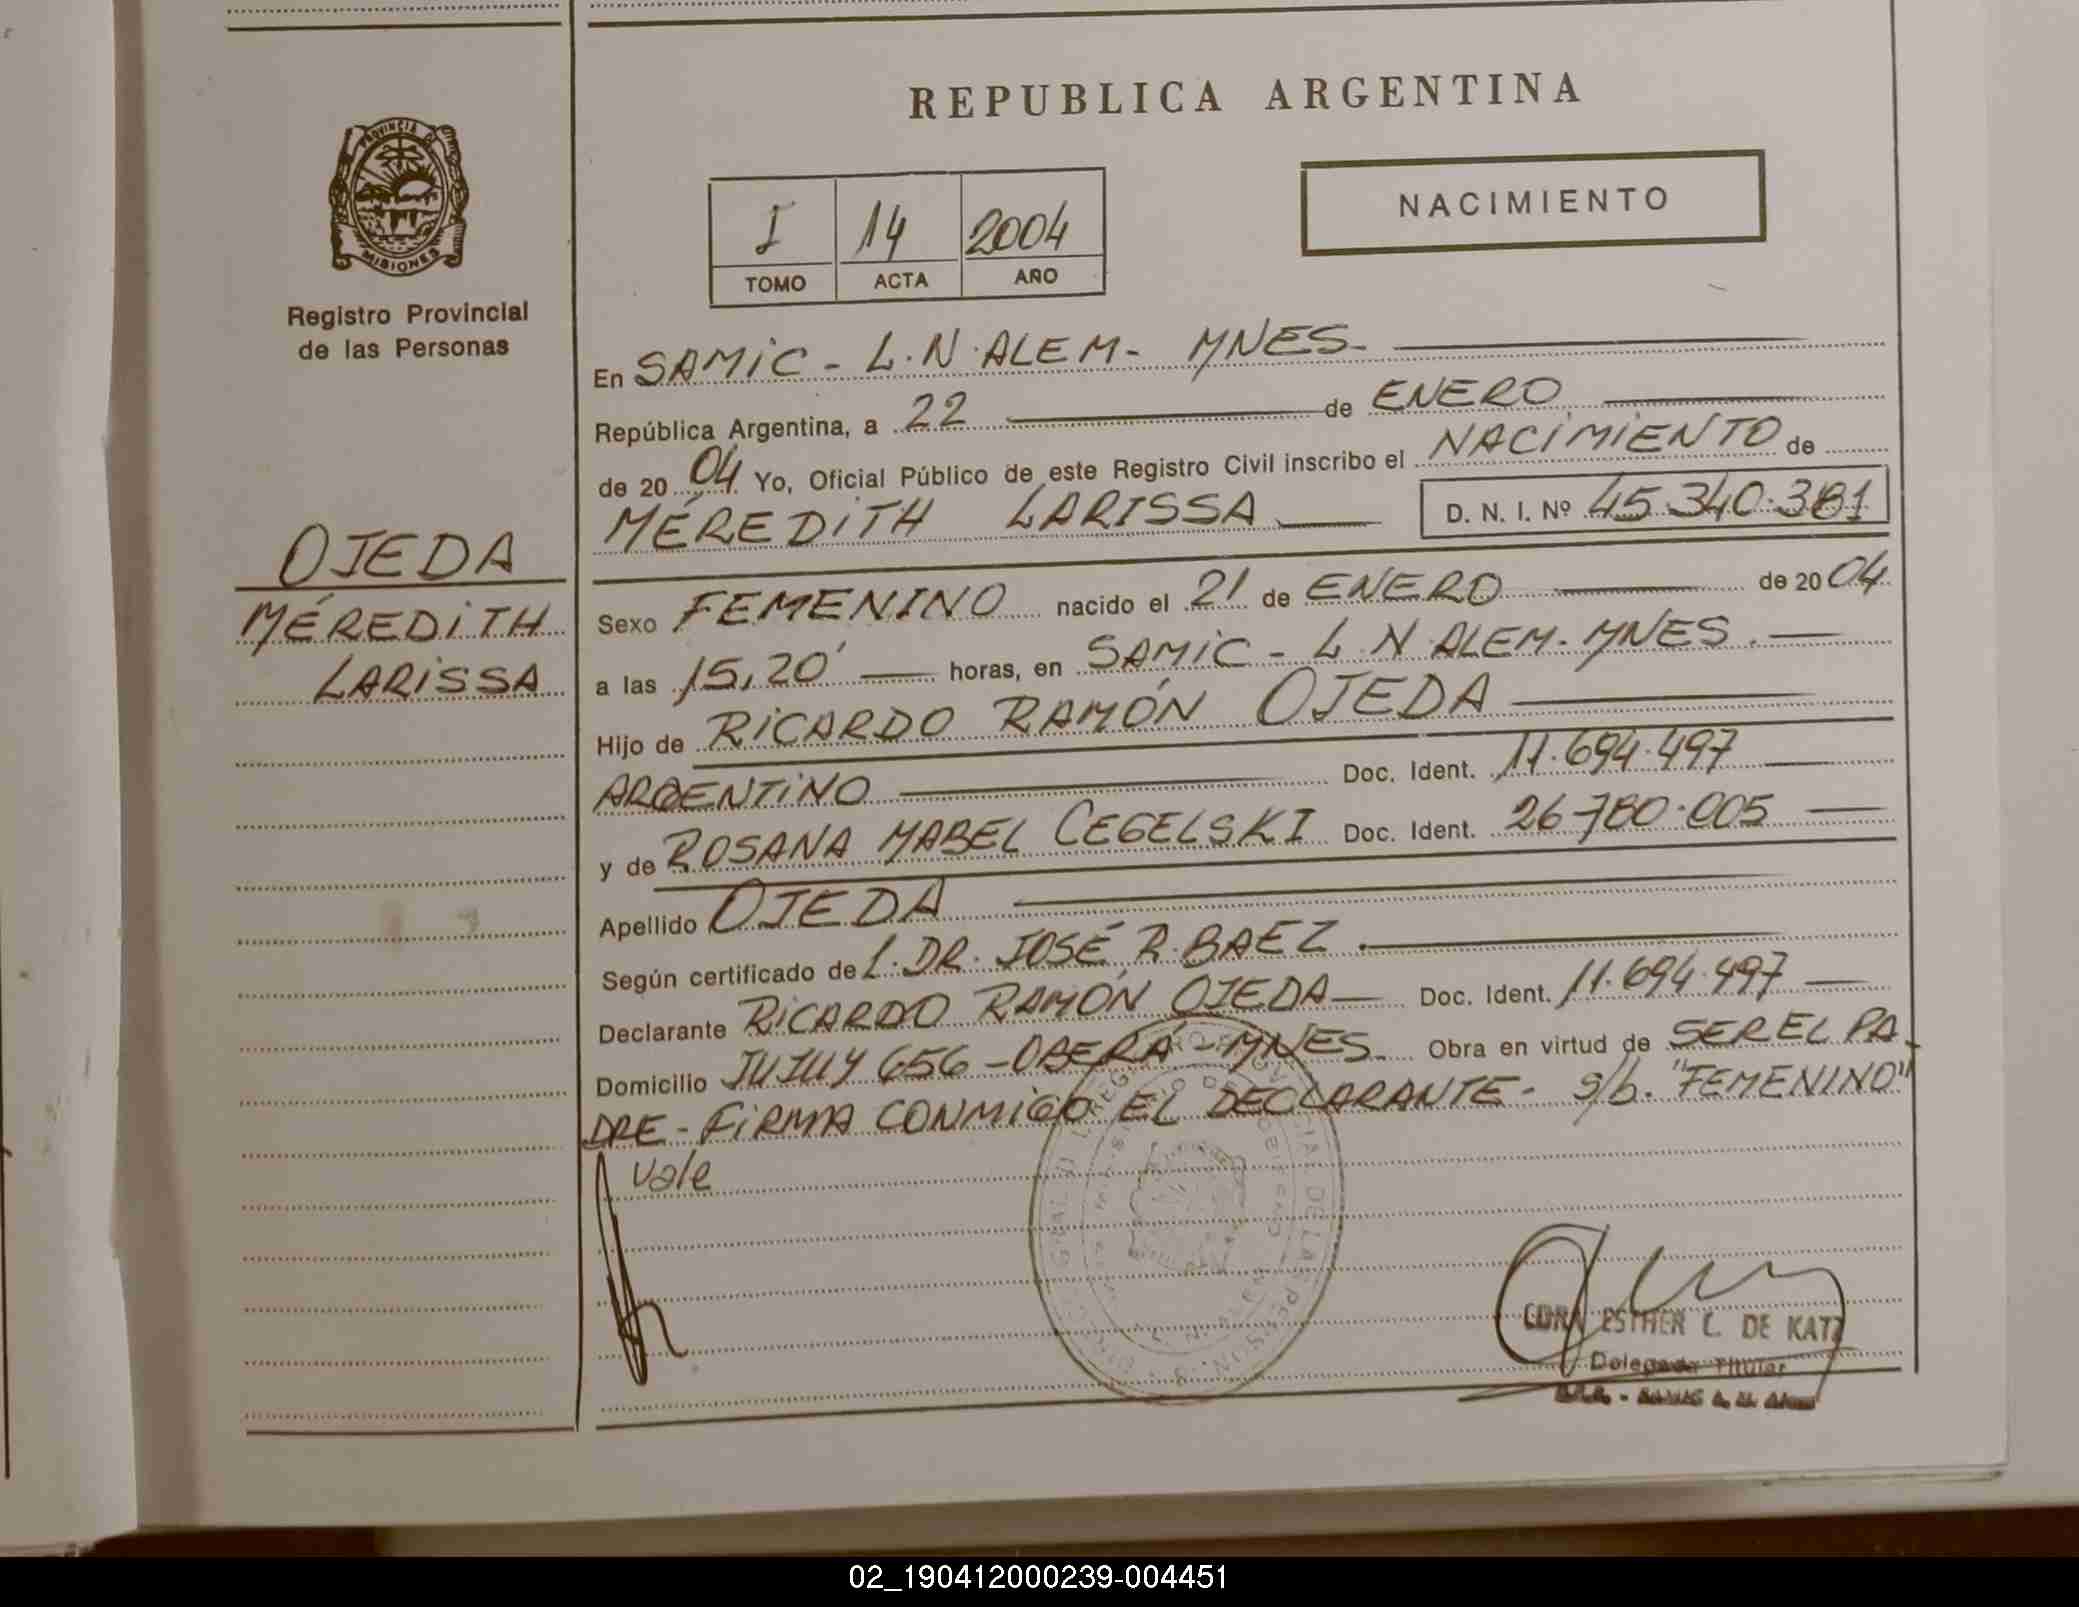 REPUBLICA ARGENTINA
NACIMIENTO
I 14 2004
TOMO ACTA AÑO
PROVINCIA DE
MISIONES
Registro Provincial
de las Personas
OJEDA
MÉREDITH
LARISSA
En SAMIC - L.N.ALEM - MNES -
República Argentina, a 22 de ENERO
de 20 04 Yo, Oficial Público de este Registro Civil inscribo el NACIMIENTO de
MÉREDITH LARISSA D. N. I. Nº 45.340.381
Sexo FEMENINO nacido el 21 de ENERO de 20 04
a las 15,20' horas, en SAMIC - L.N.ALEM - MNES.
Hijo de RICARDO RAMÓN OJEDA
ARGENTINO Doc. Ident. 11.694.497
y de ROSANA MABEL CEGELSKI Doc. Ident. 26.780.005
Apellido OJEDA
Según certificado de L. DR. JOSÉ R. BAEZ.
Declarante RICARDO RAMÓN OJEDA Doc. Ident. 11.694.497
Domicilio JUJUY 656 - OBERÁ - MNES. Obra en virtud de SER EL PA-
DRE - FIRMA CONMIGO EL DECLARANTE - s/b. "FEMENINO"
vale
ESTHER C. DE KATZ
Delegada Titular
02_190412000239-004451